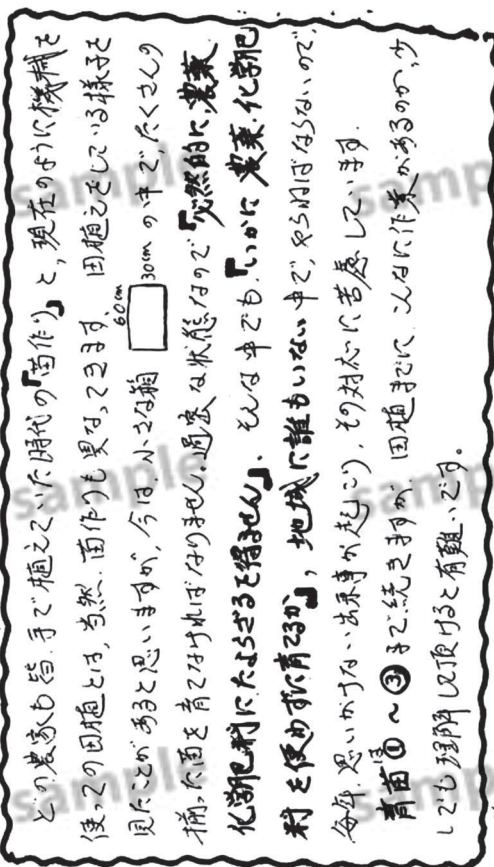 どの農家も皆、手で植えていた時代の「苗作り」と、現在のように機械を
使っての田植とは、当然、苗作りも異なってきます。田植えをしている様子を
見たことがあると思いますが、今は、小さな箱 60cm 30cm の中で、たくさんの
揃った苗を育てなければなりません。過密な状態なので「必然的に、農薬、
化学肥料にたよらざるを得ません」。そんな中でも、「いかに農薬・化学肥
料を使わずに育てるか」、地域に誰もいない中で、やらねばならないので、
毎年、思いがけない出来事が起こり、その対応に苦慮しています。
育苗①〜③まで続きますが、田植までに、こんなに作業があるのか、少
しでも理解して頂けると有難いです。
sample
sample
sample
sample
sample
sample